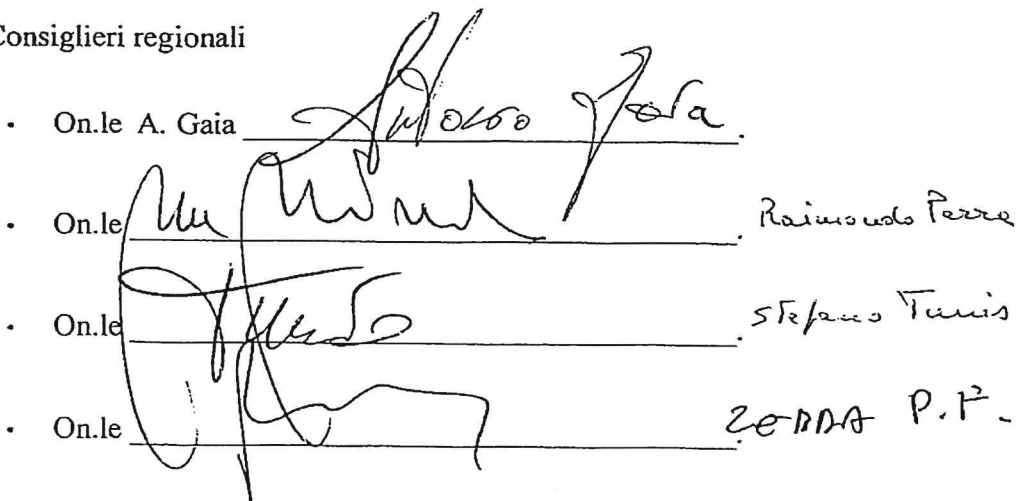 Consiglieri regionali
• On.le A. Gaia
• On.le Raimondo Perra
• On.le Stefano Tunis
• On.le ZEDDA P.F.